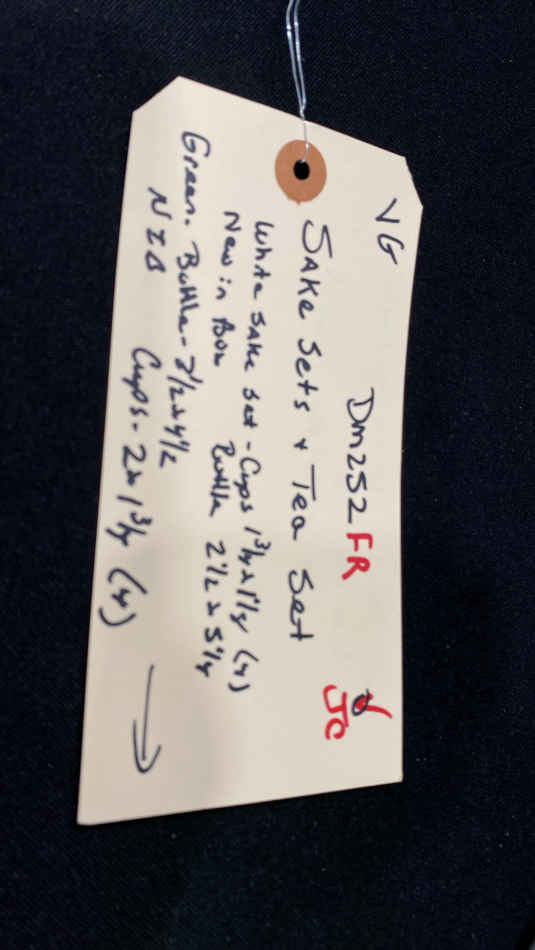 VG DM252 FR JC
SAKE Sets + Tea Set
White SAKE Set - Cups 1 3/4 x 1 1/4 (4)
New in Box Bottle 2 1/2 x 5 1/4
Green. Bottle - 2 1/2 x 4 1/2
NIB Cups. 2 x 1 3/4 (4) →